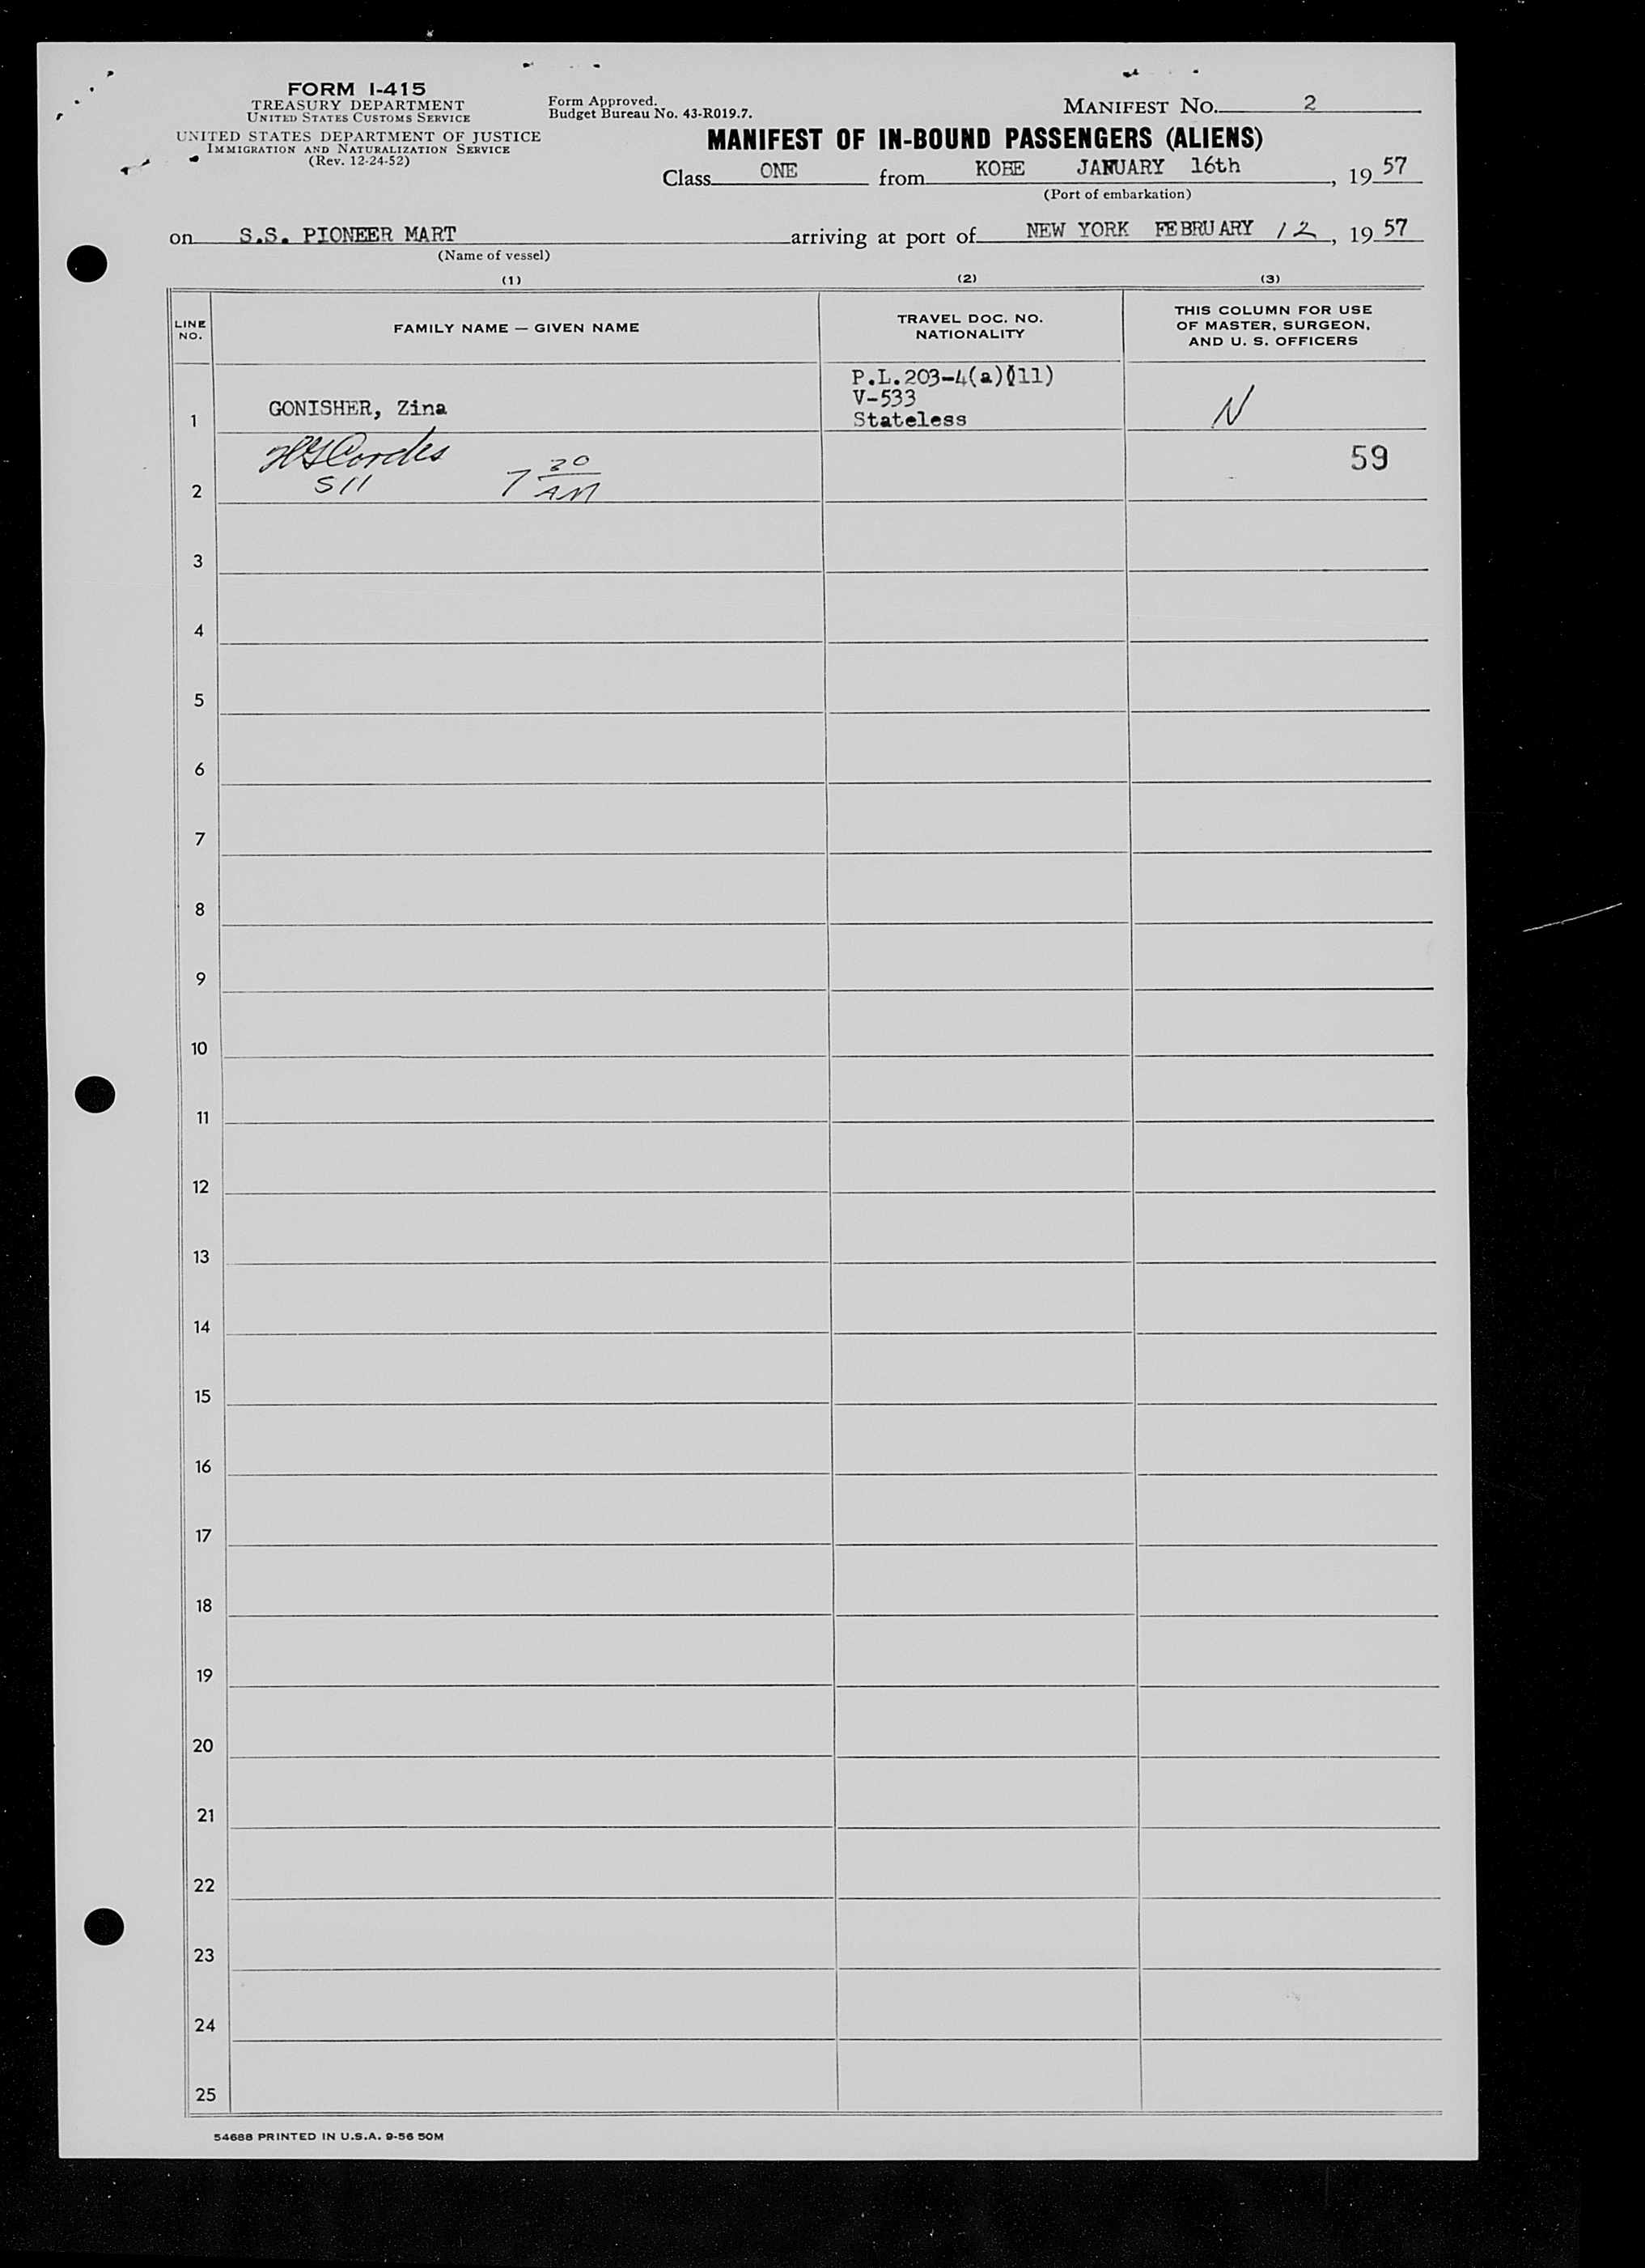 FORM I-415
TREASURY DEPARTMENT
UNITED STATES CUSTOMS SERVICE
UNITED STATES DEPARTMENT OF JUSTICE
IMMIGRATION AND NATURALIZATION SERVICE
(Rev. 12-24-52)
Form Approved.
Budget Bureau No. 43-R019.7.
MANIFEST NO. 2
MANIFEST OF IN-BOUND PASSENGERS (ALIENS)
Class ONE from KOBE JANUARY 16th, 19 57
(Port of embarkation)
on S.S. PIONEER MART arriving at port of NEW YORK FEBRUARY 12, 19 57
(Name of vessel)
(1) (2) (3)
LINE NO. FAMILY NAME — GIVEN NAME TRAVEL DOC. NO. NATIONALITY THIS COLUMN FOR USE OF MASTER, SURGEON, AND U. S. OFFICERS
P.L.203-4(a)(11)
V-533
1 GONISHER, Zina Stateless N
59
2 511 7 30 AM
3
4
5
6
7
8
9
10
11
12
13
14
15
16
17
18
19
20
21
22
23
24
25
54688 PRINTED IN U.S.A. 9-56 50M